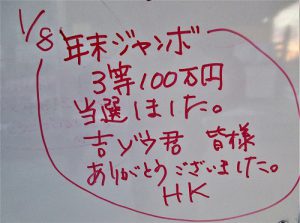 1/8
年末ジャンボ
3等100万円
当選しました。
吉ゾウ君 皆様
ありがとうございました。
HK